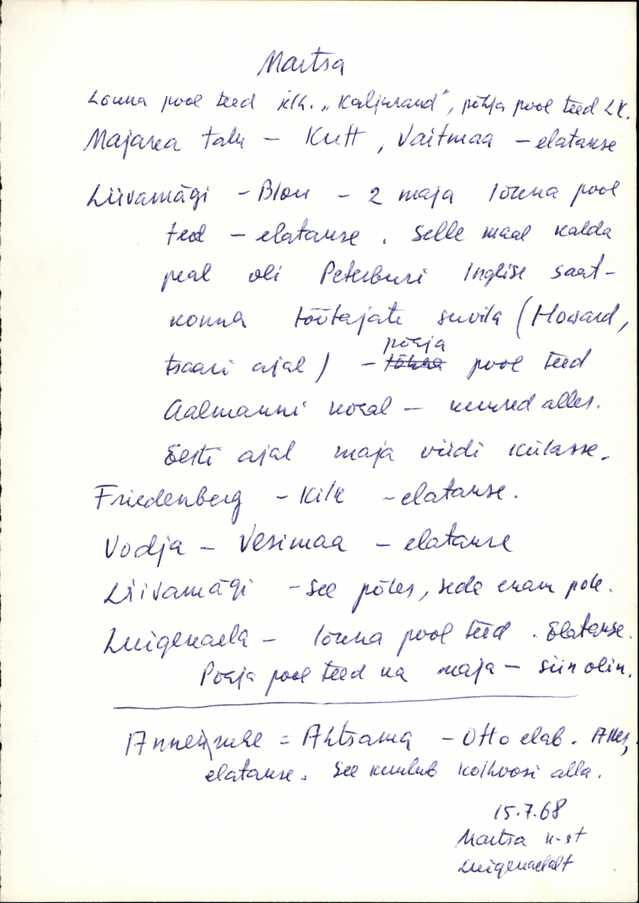 Martsa
Lõuna pool teed kk. „Kaljurand", põhja pool teed LK.
Majaka talu – Kutt, Vaitmaa – elatakse
Liivamägi – Blon – 2 maja lõuna pool
teed – elatakse. Selle maal kalda
peal oli Peterburi Inglise saat-
konna töötajate suvila (Howard,
tsaari ajal) – põhja pool teed
Aalmanni kõsal – alles.
Eesti ajal maja viidi külasse.
Friedenberg – Kilk – elatakse.
Vodja – Vesimaa – elatakse
Liivamägi – See põles, seda enam pole.
Luigenaela – lõuna pool teed. Elatakse.
Põhja pool teed ka maja – siin olin.
= Ahtsama – Otto elab. Alles,
elatakse. See kuulub kolhoosi alla.
15.7.68
Martsa k-st
Luigenaelalt